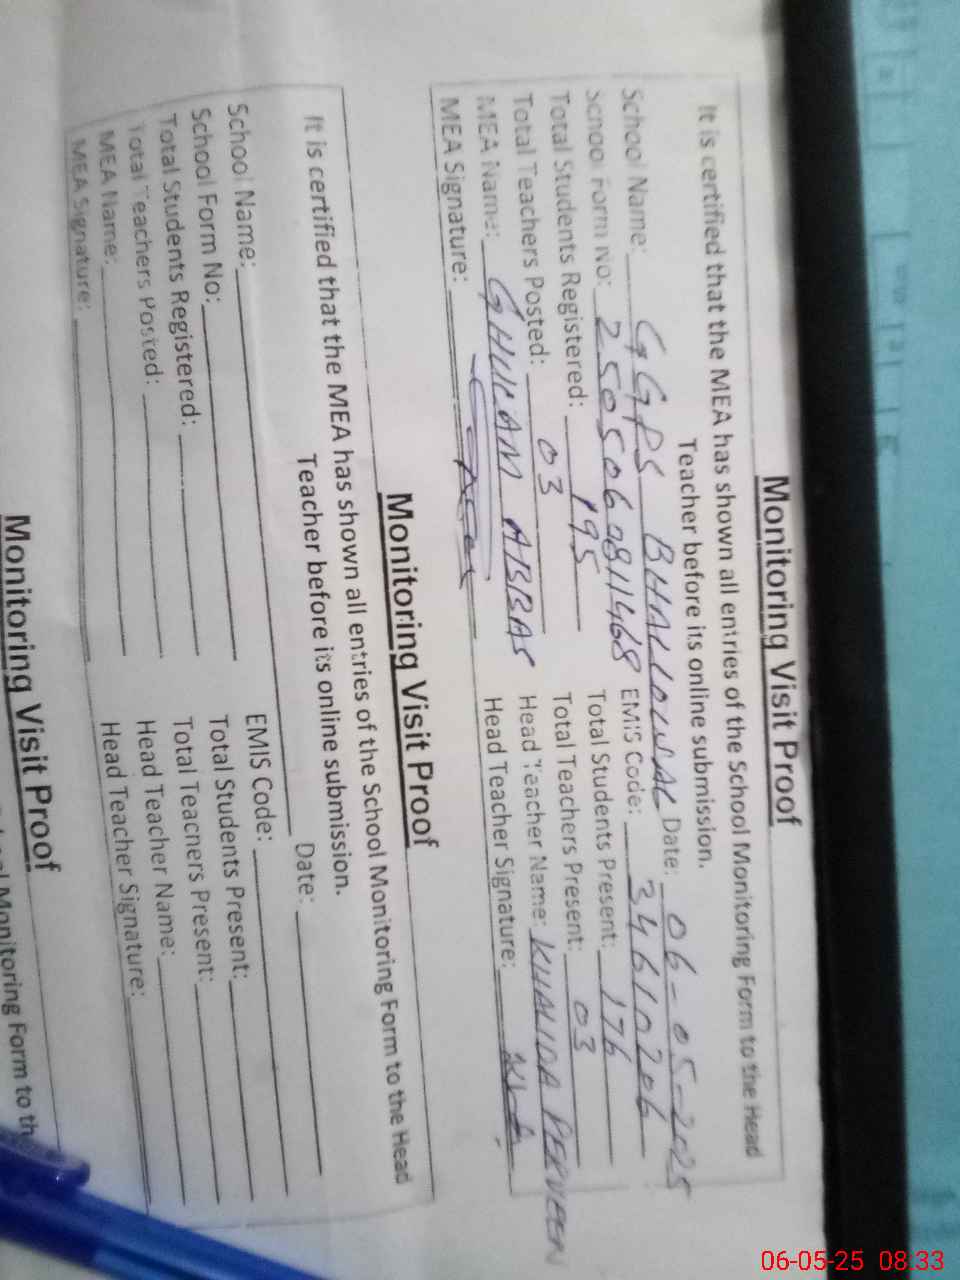 Monitoring Visit Proof
It is certified that the MEA has shown all entries of the School Monitoring Form to the Head
Teacher before its online submission.
School Name: GGPS BHALLOWAL Date: 06-05-2025
School Form No: 2505060811468 EMIS Code: 34610206
Total Students Registered: 195 Total Students Present: 176
Total Teachers Posted: 03 Total Teachers Present: 03
MEA Name: GHULAM ABBAS Head Teacher Name: KHALIDA PERVEEN
MEA Signature: Head Teacher Signature:
Monitoring Visit Proof
It is certified that the MEA has shown all entries of the School Monitoring Form to the Head
Teacher before its online submission.
School Name: Date:
School Form No: EMIS Code:
Total Students Registered: Total Students Present:
Total Teachers Posted: Total Teachers Present:
MEA Name: Head Teacher Name:
MEA Signature: Head Teacher Signature:
Monitoring Visit Proof
Monitoring Form to th
06-05-25 08:33